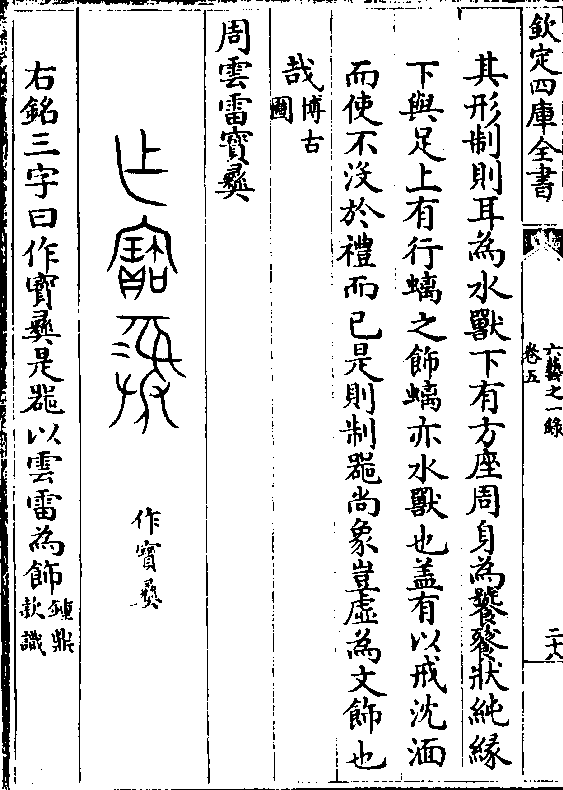 欽定四庫全書
六藝之一錄
卷五
二十八
其形制則耳為水獸下有方座周身為饕餮狀純緣
下與足上有行螭之飾螭亦水獸也蓋有以戒沈湎
而使不没於禮而已是則制噐尚象豈虛為文飾也
哉博古
圖
周雲雷寳彝
作寳彝
右銘三字曰作寳彝是噐以雲雷為飾鍾鼎
款識